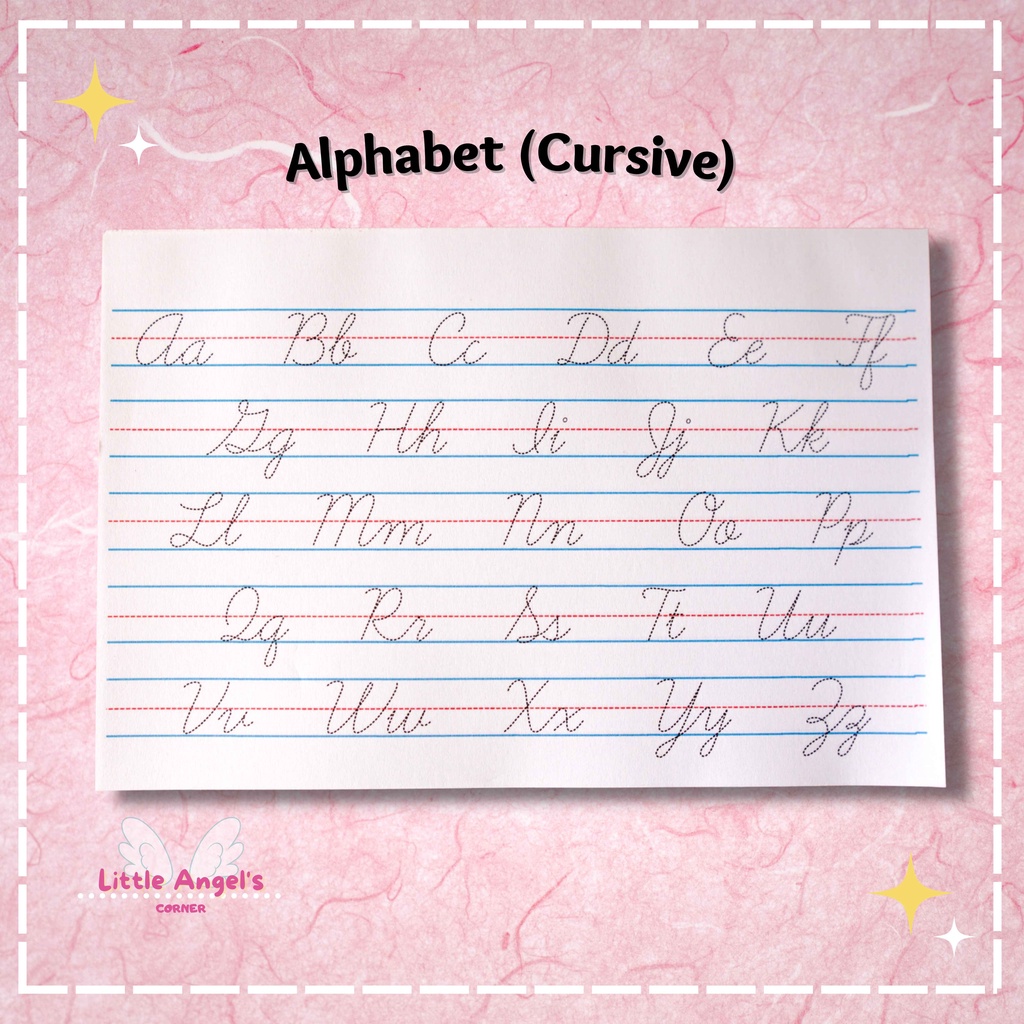 Alphabet (Cursive)
Aa Bb Cc Dd Ee Ff
Gg Hh Ii Jj Kk
Ll Mm Nn Oo Pp
Qq Rr Ss Tt Uu
Vv Ww Xx Yy Zz
Little Angel's
CORNER